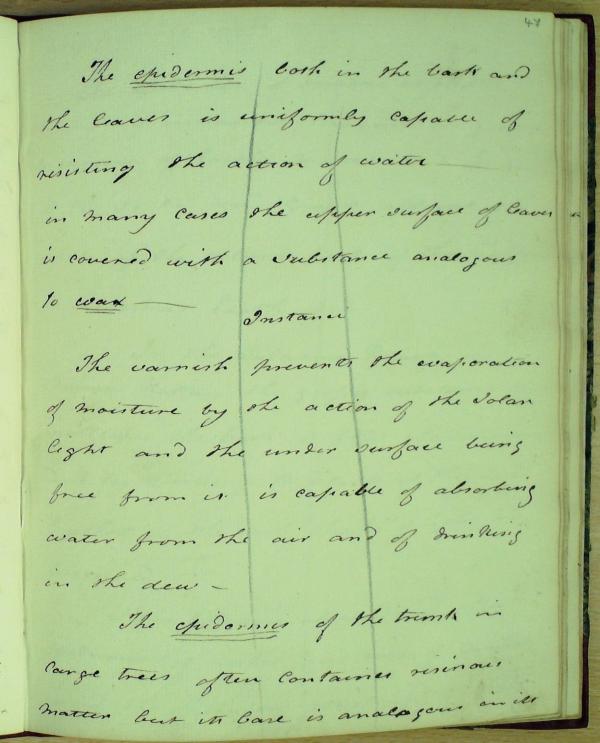 48
The epidermis both in the bark and
the leaves is uniformly capable of
resisting the action of water —
in many cases the upper surface of leaves
is covered with a substance analogous
to wax —
Instance
The varnish prevents the evaporation
of moisture by the action of the solar
light and the under surface being
free from it is capable of absorbing
water from the air and of drinking
in the dew –
The epidermis of the trunk in
large trees often contains resinous
matter but its base is analogous in its